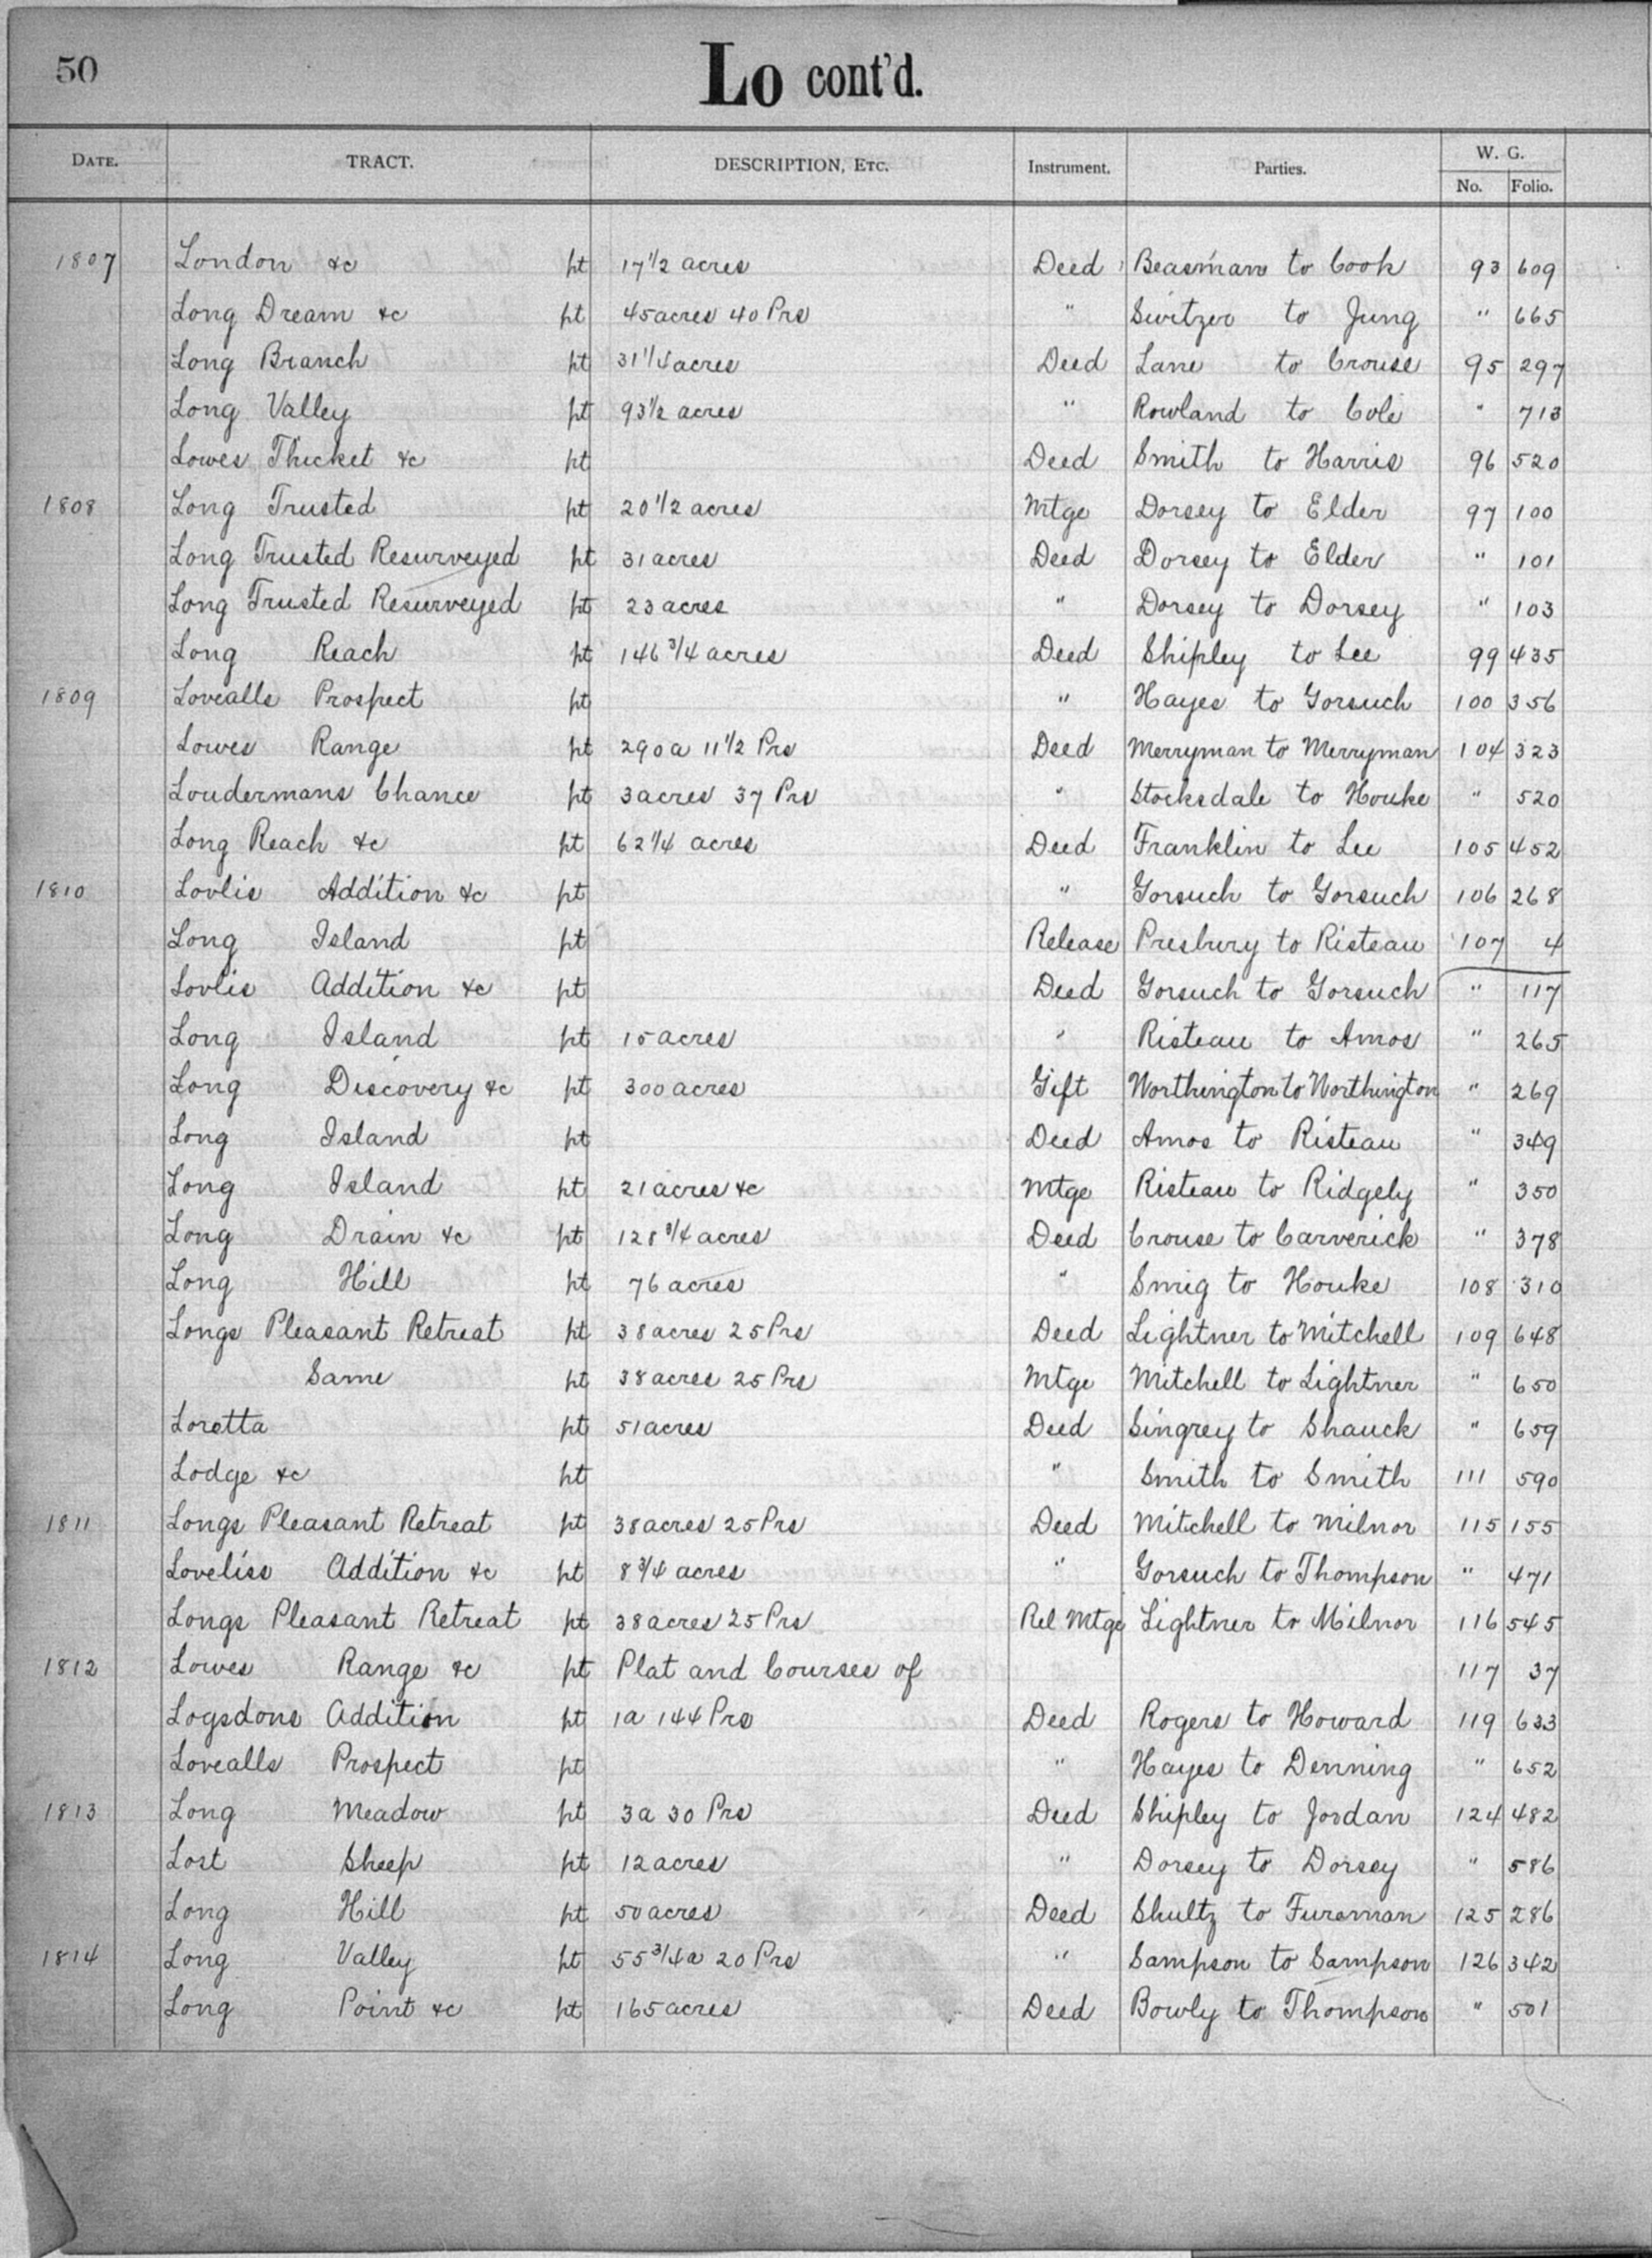 50
Lo cont'd.
DATE. TRACT. DESCRIPTION, ETC. Instrument. Parties. W. G.
No. Folio.
1807 London &c pt 17 1/2 acres Deed Beasman to Cook 93 609
Long Dream &c pt 45 acres 40 Prs " Switzer to Jung " 665
Long Branch pt 31 1/4 acres Deed Lane to Crouse 95 297
Long Valley pt 93 1/2 acres " Rowland to Cole " 713
Lowes Thicket &c pt Deed Smith to Harris 96 520
1808 Long Trusted pt 20 1/2 acres Mtge Dorsey to Elder 97 100
Long Trusted Resurveyed pt 31 acres Deed Dorsey to Elder " 101
Long Trusted Resurveyed pt 23 acres " Dorsey to Dorsey " 103
Long Reach pt 146 3/4 acres Deed Shipley to Lee 99 435
1809 Lovealls Prospect pt " Hayes to Gorsuch 100 356
Lowes Range pt 290 a 11 1/2 Prs Deed Merryman to Merryman 104 323
Loudermans Chance pt 3 acres 37 Prs " Stocksdale to Houke " 520
Long Reach &c pt 62 1/4 acres Deed Franklin to Lee 105 452
1810 Lovlis Addition &c pt " Gorsuch to Gorsuch 106 268
Long Island pt Release Presbury to Risteau 107 4
Lovlis Addition &c pt Deed Gorsuch to Gorsuch " 117
Long Island pt 15 acres " Risteau to Amos " 265
Long Discovery &c pt 300 acres Gift Worthington to Worthington " 269
Long Island pt Deed Amos to Risteau " 349
Long Island pt 21 acres &c Mtge Risteau to Ridgely " 350
Long Drain &c pt 128 3/4 acres Deed Crouse to Carverick " 378
Long Hill pt 76 acres " Smig to Houke 108 310
Longs Pleasant Retreat pt 38 acres 25 Prs Deed Lightner to Mitchell 109 648
Same pt 38 acres 25 Prs Mtge Mitchell to Lightner " 650
Loretta pt 51 acres Deed Singrey to Shauck " 659
Lodge &c pt " Smith to Smith 111 590
1811 Longs Pleasant Retreat pt 38 acres 25 Prs Deed Mitchell to Milnor 115 155
Loveliss Addition &c pt 8 3/4 acres " Gorsuch to Thompson " 471
Longs Pleasant Retreat pt 38 acres 25 Prs Rel Mtge Lightner to Milnor 116 545
1812 Lowes Range &c pt Plat and Courses of 117 37
Logsdons Addition pt 1a 144 Prs Deed Rogers to Howard 119 633
Lovealls Prospect pt " Hayes to Denning " 652
1813 Long Meadow pt 3a 30 Prs Deed Shipley to Jordan 124 482
Lost Sheep pt 12 acres " Dorsey to Dorsey " 586
Long Hill pt 50 acres Deed Shultz to Fursman 125 286
1814 Long Valley pt 55 3/4 a 20 Prs " Sampson to Sampson 126 342
Long Point &c pt 165 acres Deed Bowly to Thompson " 501